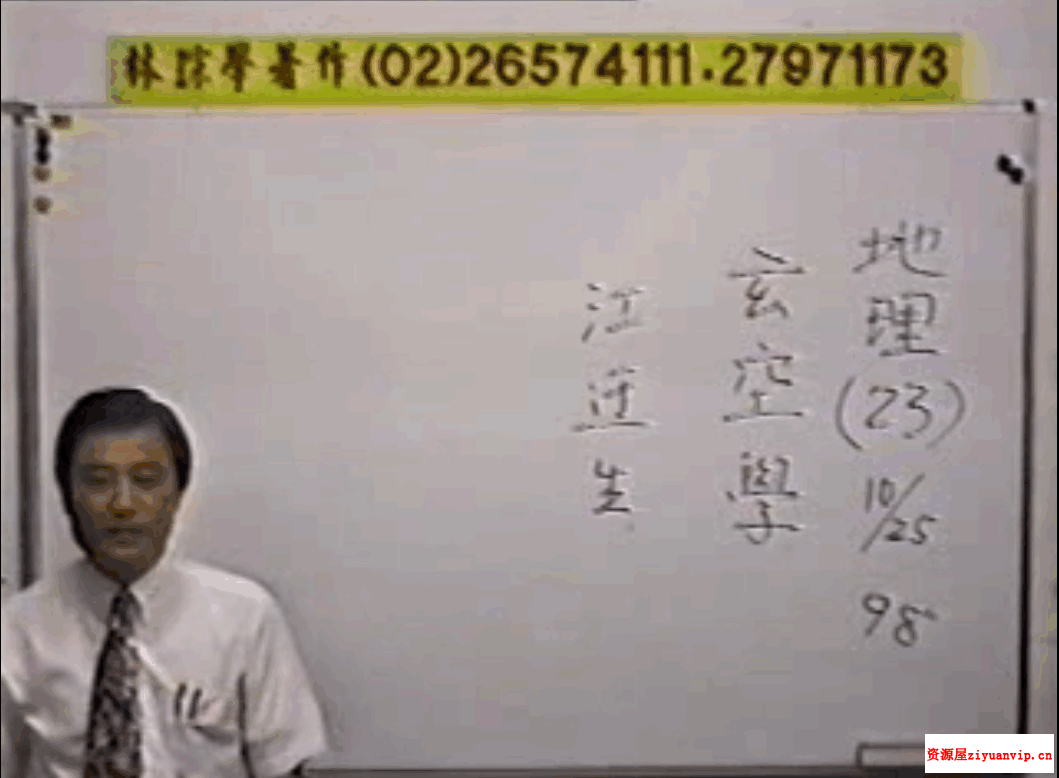 林琮學著作(02)26574111.27971173
地理(23) 10/25 98
玄空學
江
生
资源屋ziyuanvip.cn